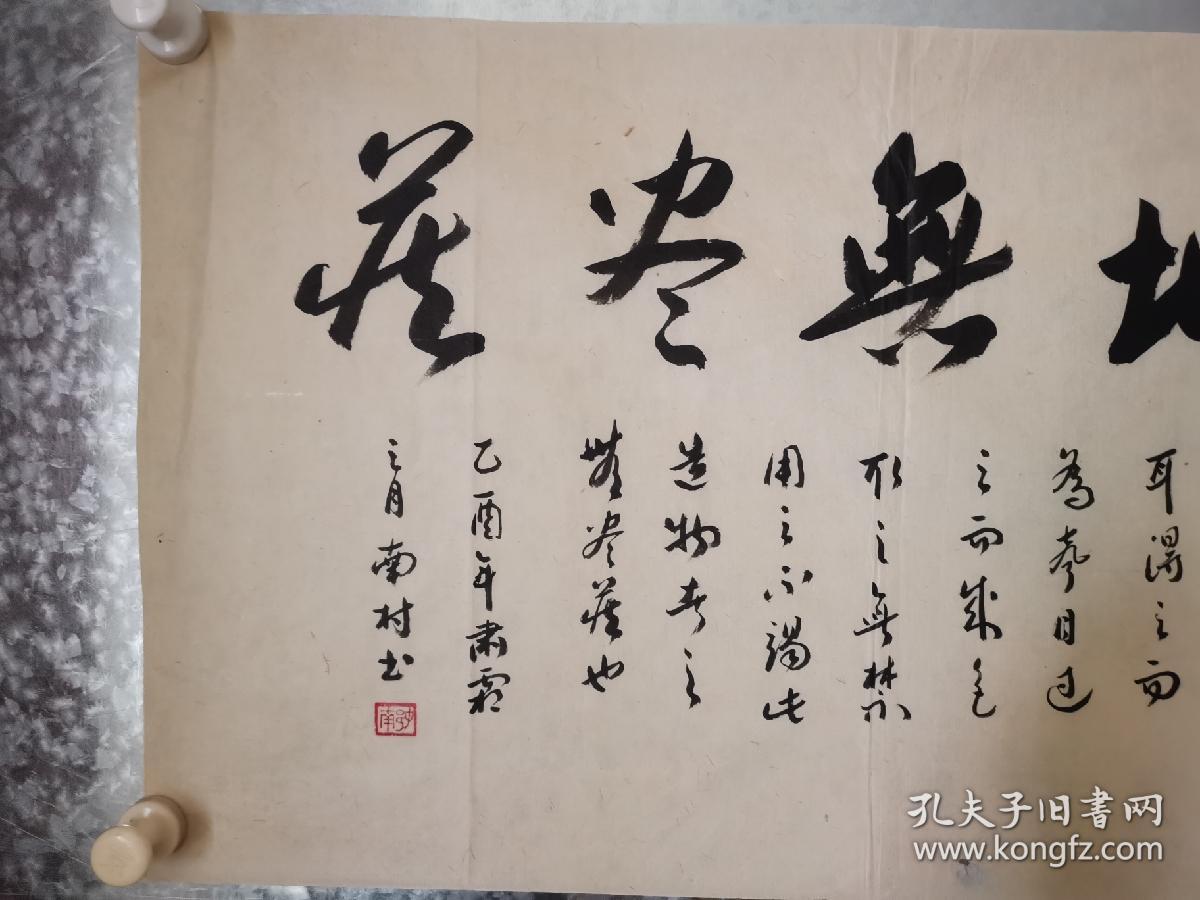 無尽藏
耳得之而
為聲目遇
之而成色
取之無禁不
用之不竭此
造物者之
無尽藏也
乙酉年肅霜
之月南村书
孔夫子旧書网
www.kongfz.com